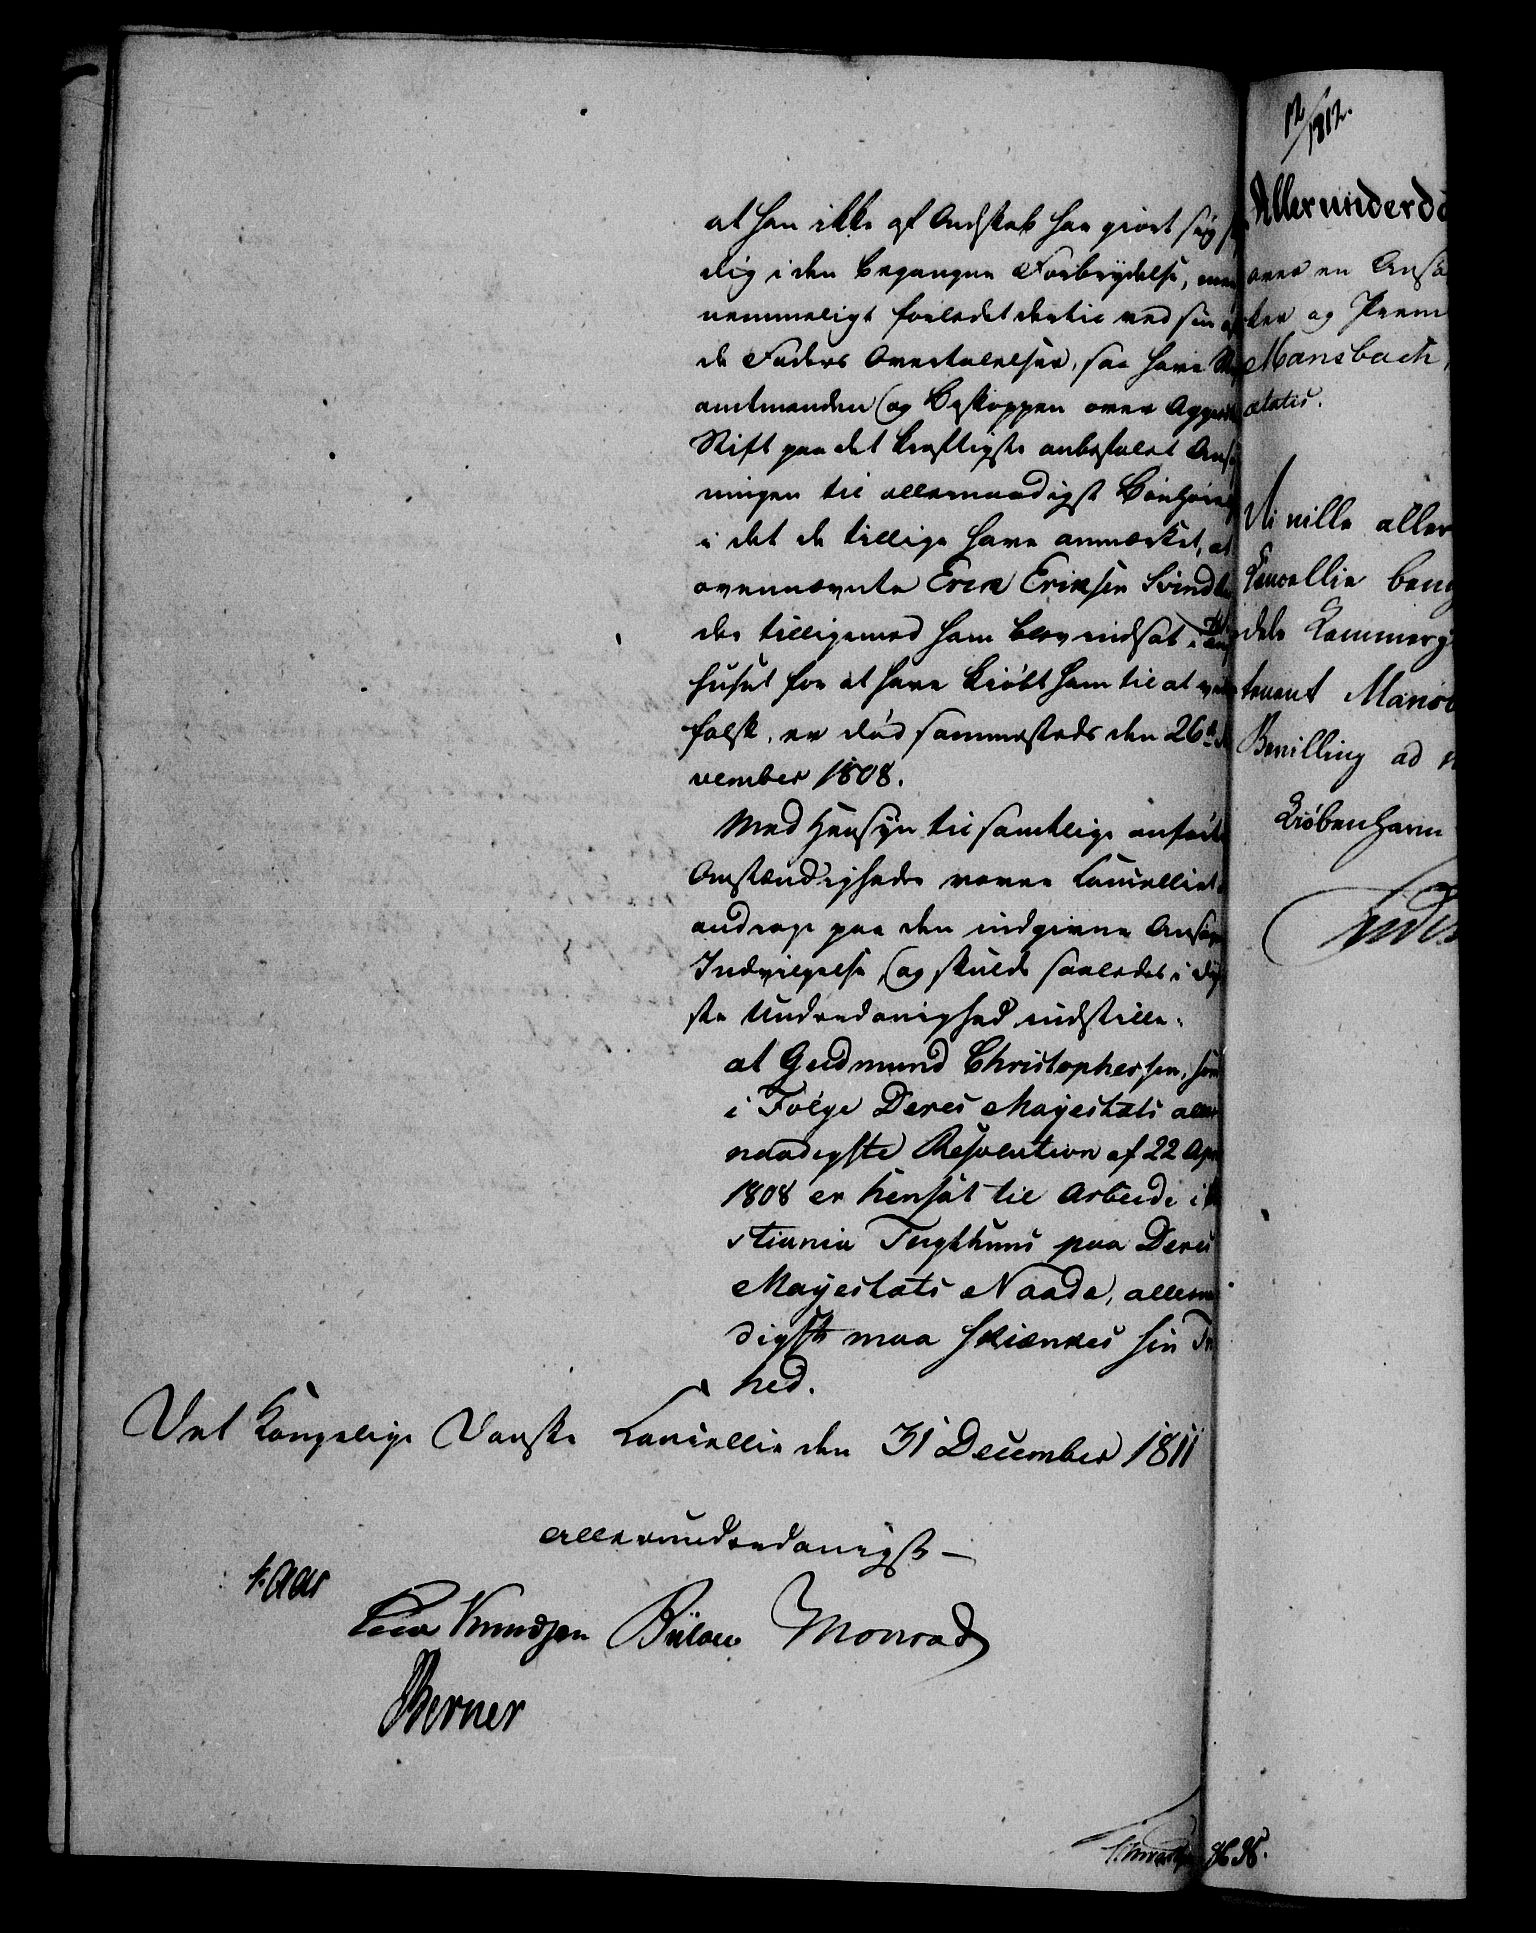 at han ikke af Ondskab har giort sig
dig i den begangne Forbrydelse, men
nemmeligt forledet dertil ved sin
de Faders Overtalelser, saa have
amtmanden og Biskoppen over Agger
Stift paa det kraftigste anbefalet Ans
ningen til allernaadigst Bønhørelse
i det de tillige have anmærket, at
ovennævnte Erik Eriksen Svind
der tilligemed ham blev indsat i Tugt
huset for at have kiøbt ham til at
falsk, er død sammesteds den 26de
vember 1808.
Med Hensyn til samtlige anførte
Omstændigheder vover Cancelliet
andrage paa den indgivne Ansøg
Indvilgelse, og skulde saaledes i dyb
ste Underdanighed indstille:
at Gudmund Christophersen, som
i Følge Deres Majestæts aller
naadigste Resolution af 22 Apr
1808 er hensat til Arbeide i
stiania Tugthuus paa Deres
Majestæts Naade, allernaa
digst maa skiænkes sin Fri
hed.
Det Kongelige Danske Cancellie den 31 December 1811
allerunderdanigst
Kaas
Knudsen Bülow Monrad
Berner
12/1812.
Allerunderda
over en Ansø
ker og Prem
Mansbach,
ætatis.
Vi ville aller
Cancellie bem
dets Kammerj
tenent Mansb
Bevilling ad
Kiøbenhavn